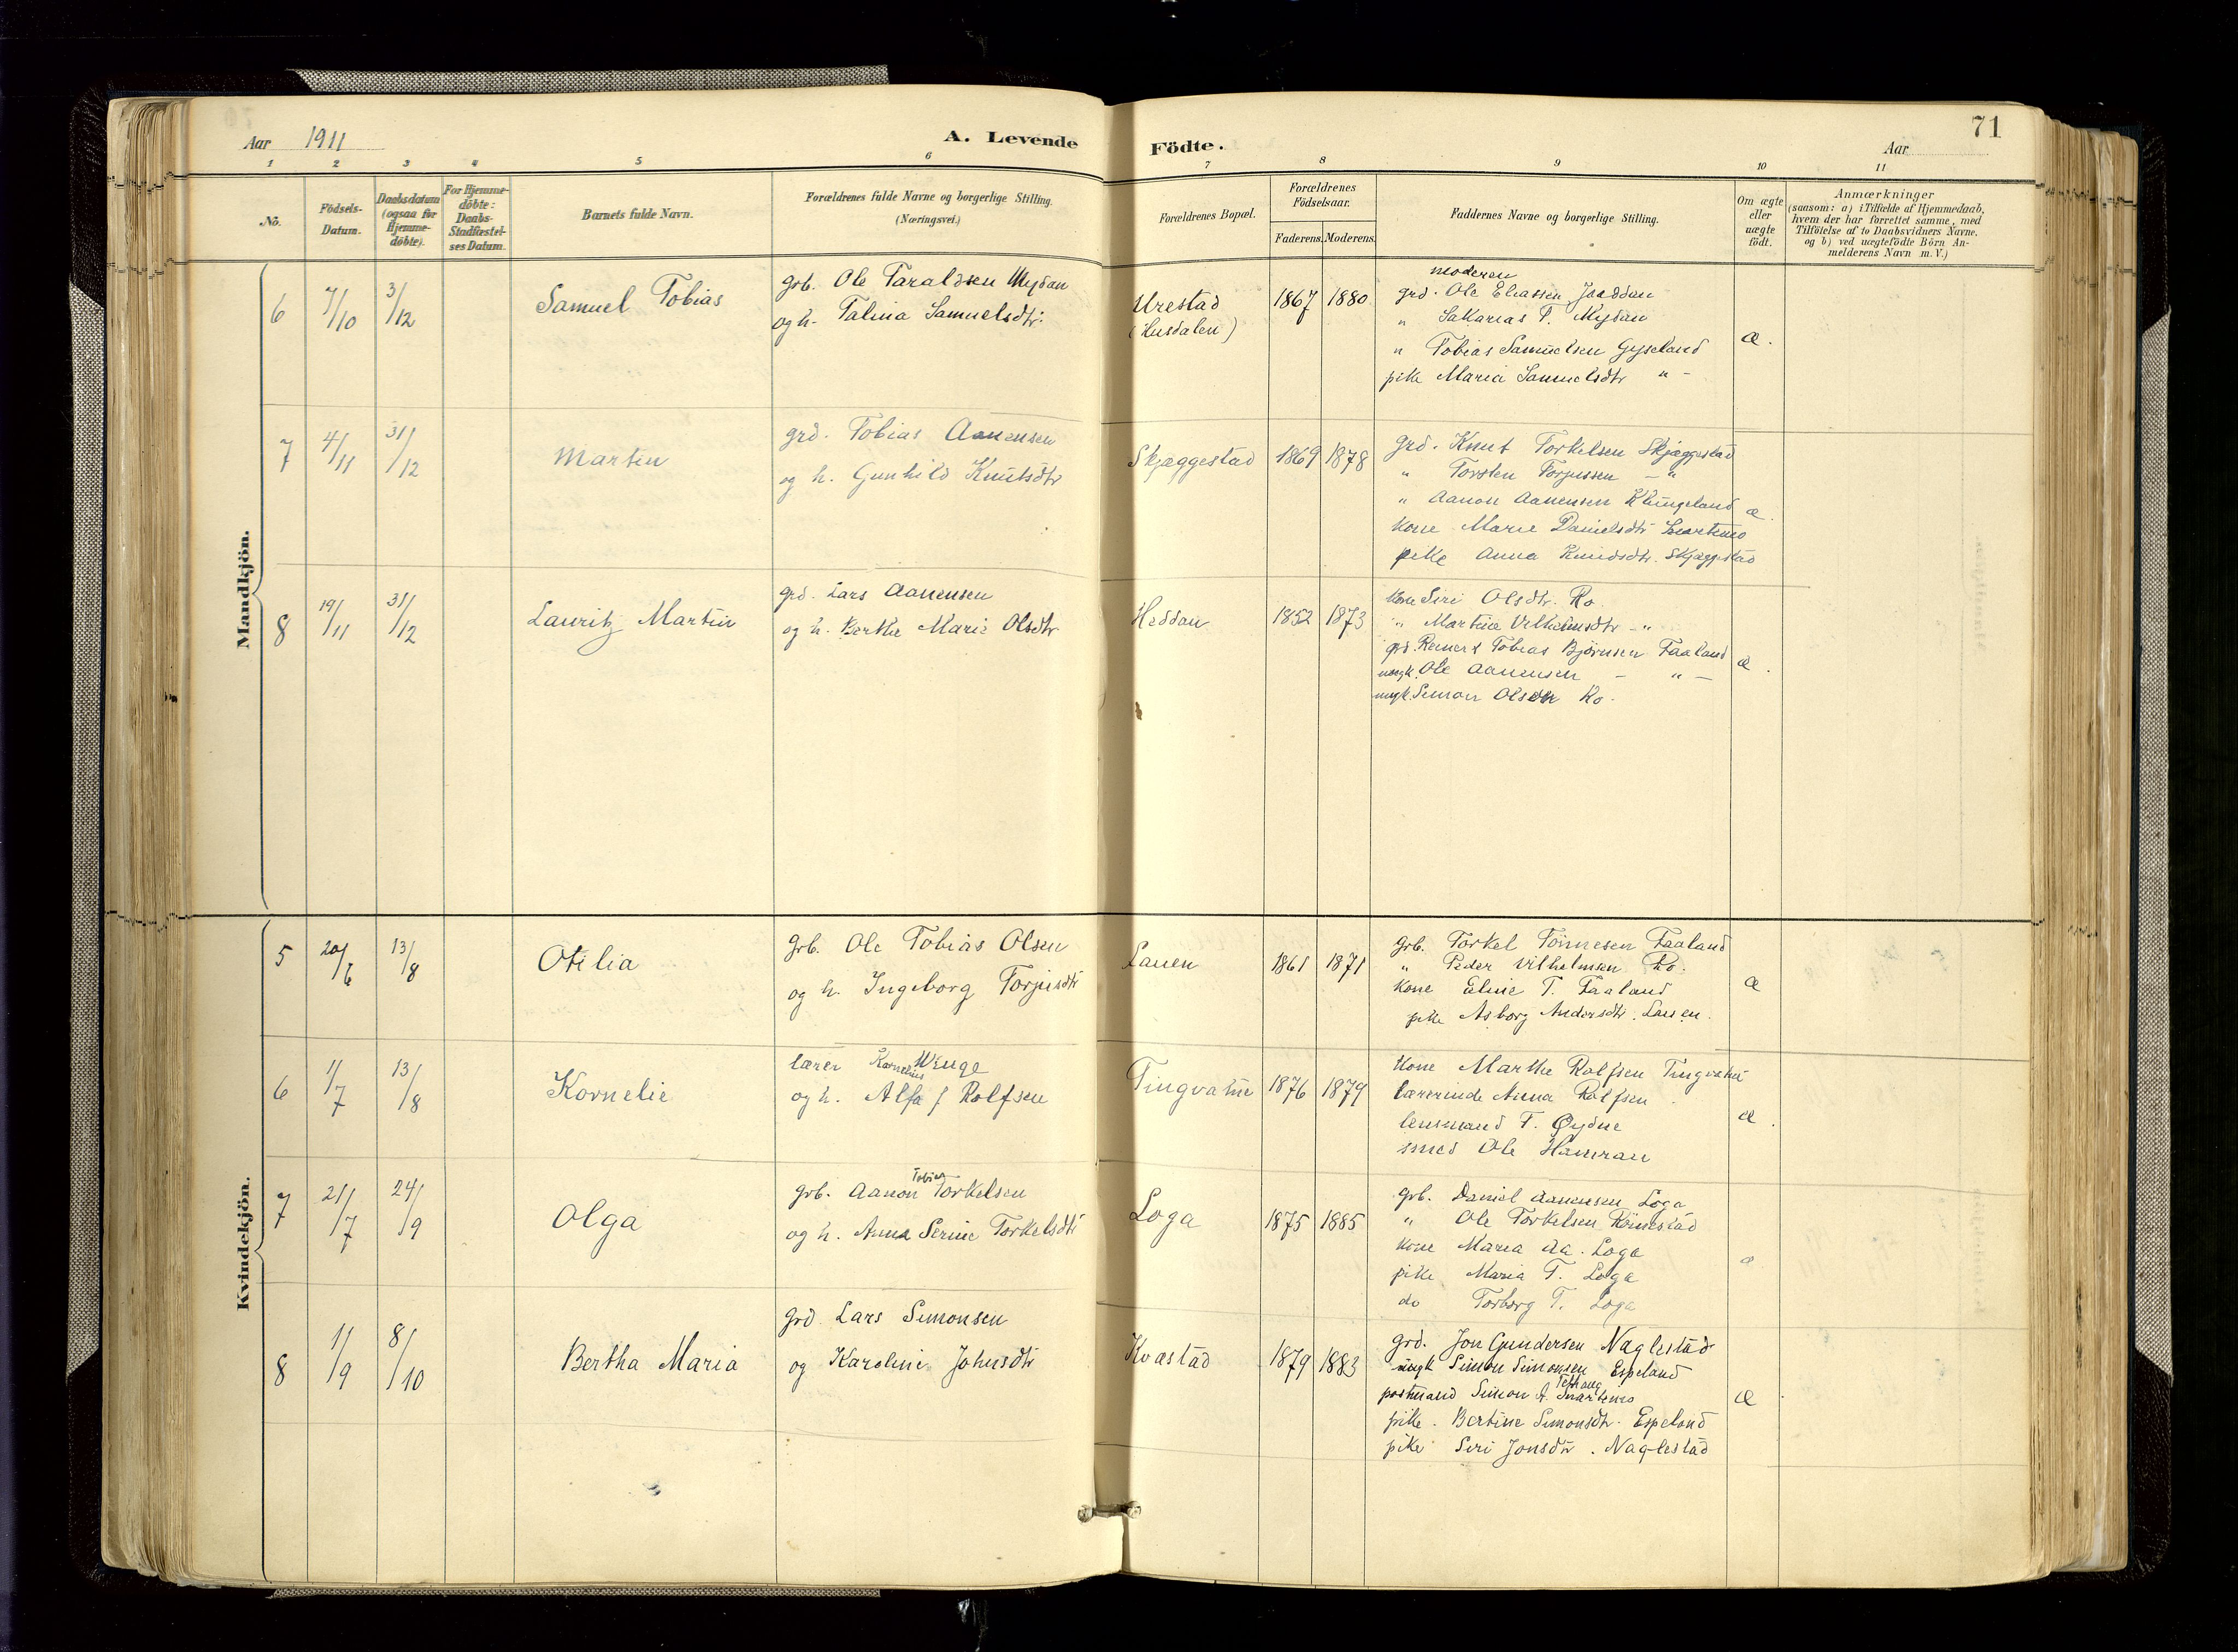 71
Aar 1911
A. Levende Födte.
Aar
1 2 3 4 5 6 7 8 9 10 11
No.
Födsels-
Datum.
Daabsdatum
(ogsaa for
Hjemme-
döbte).
For Hjemme-
döbte:
Daabs-
Stadfæstel-
ses Datum.
Barnets fulde Navn.
Forældrenes fulde Navne og borgerlige Stilling.
(Næringsvei.)
Forældrenes Bopæl.
Forældrenes
Födselsaar.
Faderens. Moderens.
Faddernes Navne og borgerlige Stilling.
Om ægte
eller
uægte
födt.
Anmærkninger
(saasom: a) i Tilfælde af Hjemmedaab,
hvem der har forrettet samme, med
Tilföielse af to Daabsvidners Navne.
og b) ved uægtefödte Börn An-
melderens Navn m. V.)
Mandkjön.
6 7/10 3/12 Samuel Tobias
grb. Ole Taraldsen Mydan
og h. Talina Samuelsdtr.
Urestad
(Husdalen)
1867 1880
moderen
grd. Ole Eliassen Joaddan
" Sakarias T. Mydan
" Tobias Samuelsen Gyseland
pike Maria Samuelsdtr " -
æ.
7 4/11 31/12 Martin
grd. Tobias Aanensen
og h. Gunhild Knutsdtr
Skjæggestad 1869 1878
grd. Knut Torkelsen Skjæggestad
" Torsten Torjussen - "
" Aanon Aanensen Klungeland
kone Marie Danielsdtr Svartemo
pike Anna Knudsdtr. Skjæggestad
æ.
8 19/11 31/12 Lauritz Martin
grd. Lars Aanensen
og h. Berthe Marie Olsdtr
Heddan 1852 1873
kone Siri Olsdtr. Ro.
" Martine Vilhelmsdtr - "
grd. Reinert Tobias Bjørnsen Faaland
ungk. Ole Aanensen - " -
ungk. Simon Olsen Ro.
æ.
Kvindekjön.
5 20/6 13/8 Otilia
grb. Ole Tobias Olsen
og h. Ingeborg Torjusdtr
Lauen 1861 1871
grb. Torkel Tönnesen Faaland
" Peder Vilhelmsen Ro.
kone Eline T. Faaland
pike Asborg Andersdtr. Lauen.
æ
6 1/7 13/8 Kornelie
lærer Kornelius Winge
og h. Alfa f Rolfsen
Tingvatne 1876 1879
kone Marthe Rolfsen Tingvatne
lærerinde Anna Rolfsen
lensmand T. Øydne
smed Ole Hamran
æ.
7 21/7 24/9 Olga
grb. Aanon Tobias Torkelsen
og h. Anna Serine Torkelsdtr
Loga 1875 1885
grb. Daniel Aanensen Loga
" Ole Torkelsen Rönnestad
kone Maria Aa. Loga
pike Maria T. Loga
do Torborg T. Loga
æ
8 1/9 8/10 Bertha Maria
grd Lars Simonsen
og Karoline Johnsdtr
Kvastad 1879 1883
grd. Jon Gundersen Naglestad
ungk Simon Simonsen Espeland
postmand Simon A. Svartemo
pike. Bertine Simonsdtr. Espeland
pike Siri Jonsdtr. Naglestad
æ